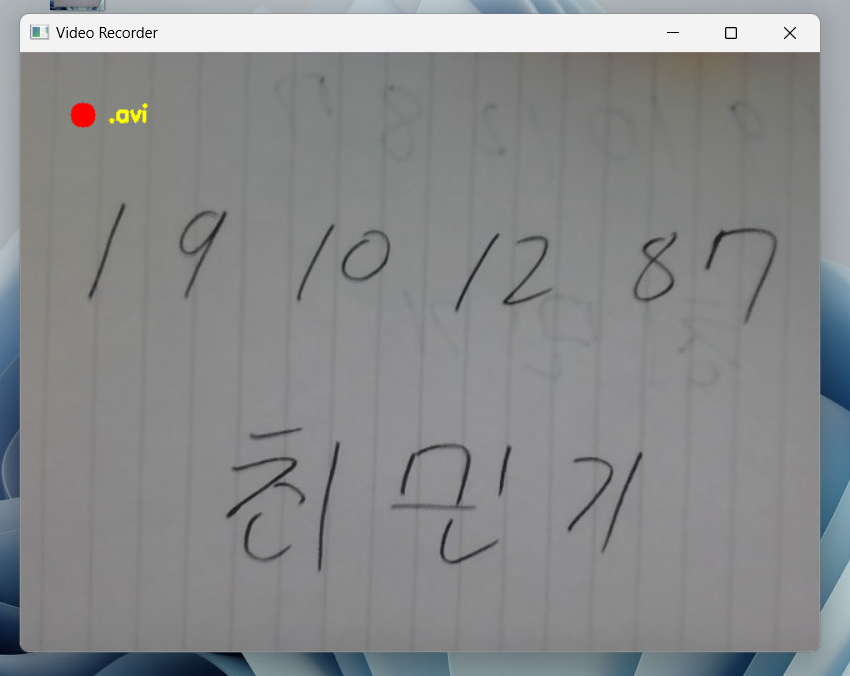 Video Recorder
.avi
19 10 12 87
최민기